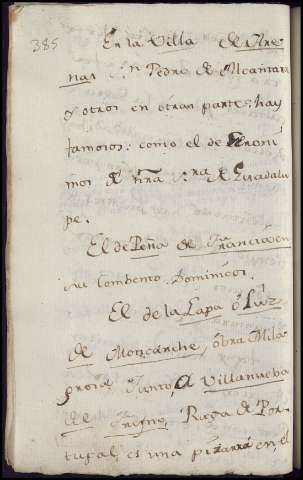 385
En la Villa de Are-
nas Sn Pedro de Alcantara
y otros en otras partes, hay
famosos: como el de Geroni-
mos de Nra Sra de Guadalu-
pe.
El de Peña de Francia, en
su Combento Dominicos.
El de la Lapa ó Luz
de Moncarche, óbra Mila-
grosa, Junto, a Villanueba
del Fresno, Raya de Por-
tugal, es una pizarra en, el